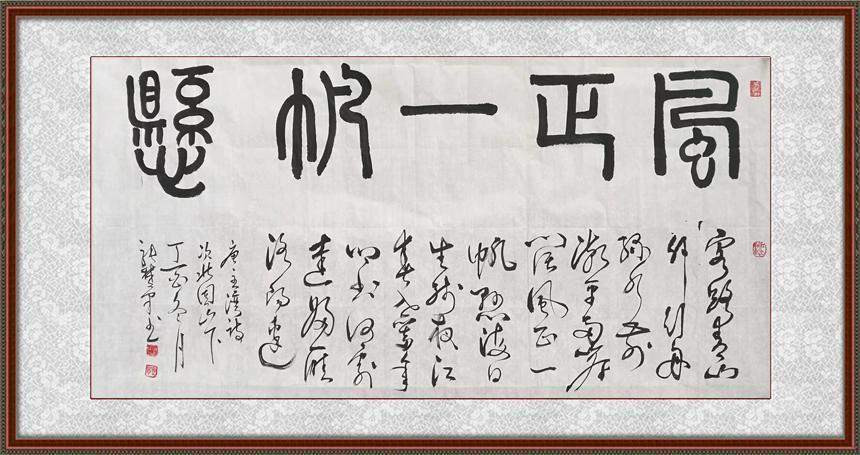 風正一帆懸
客路青山
外行舟
綠水前
潮平兩岸
闊風正一
帆懸海日
生殘夜江
春入舊年
鄉書何處
達歸雁
洛陽邊
唐王灣詩
次北固山下
丁酉冬月